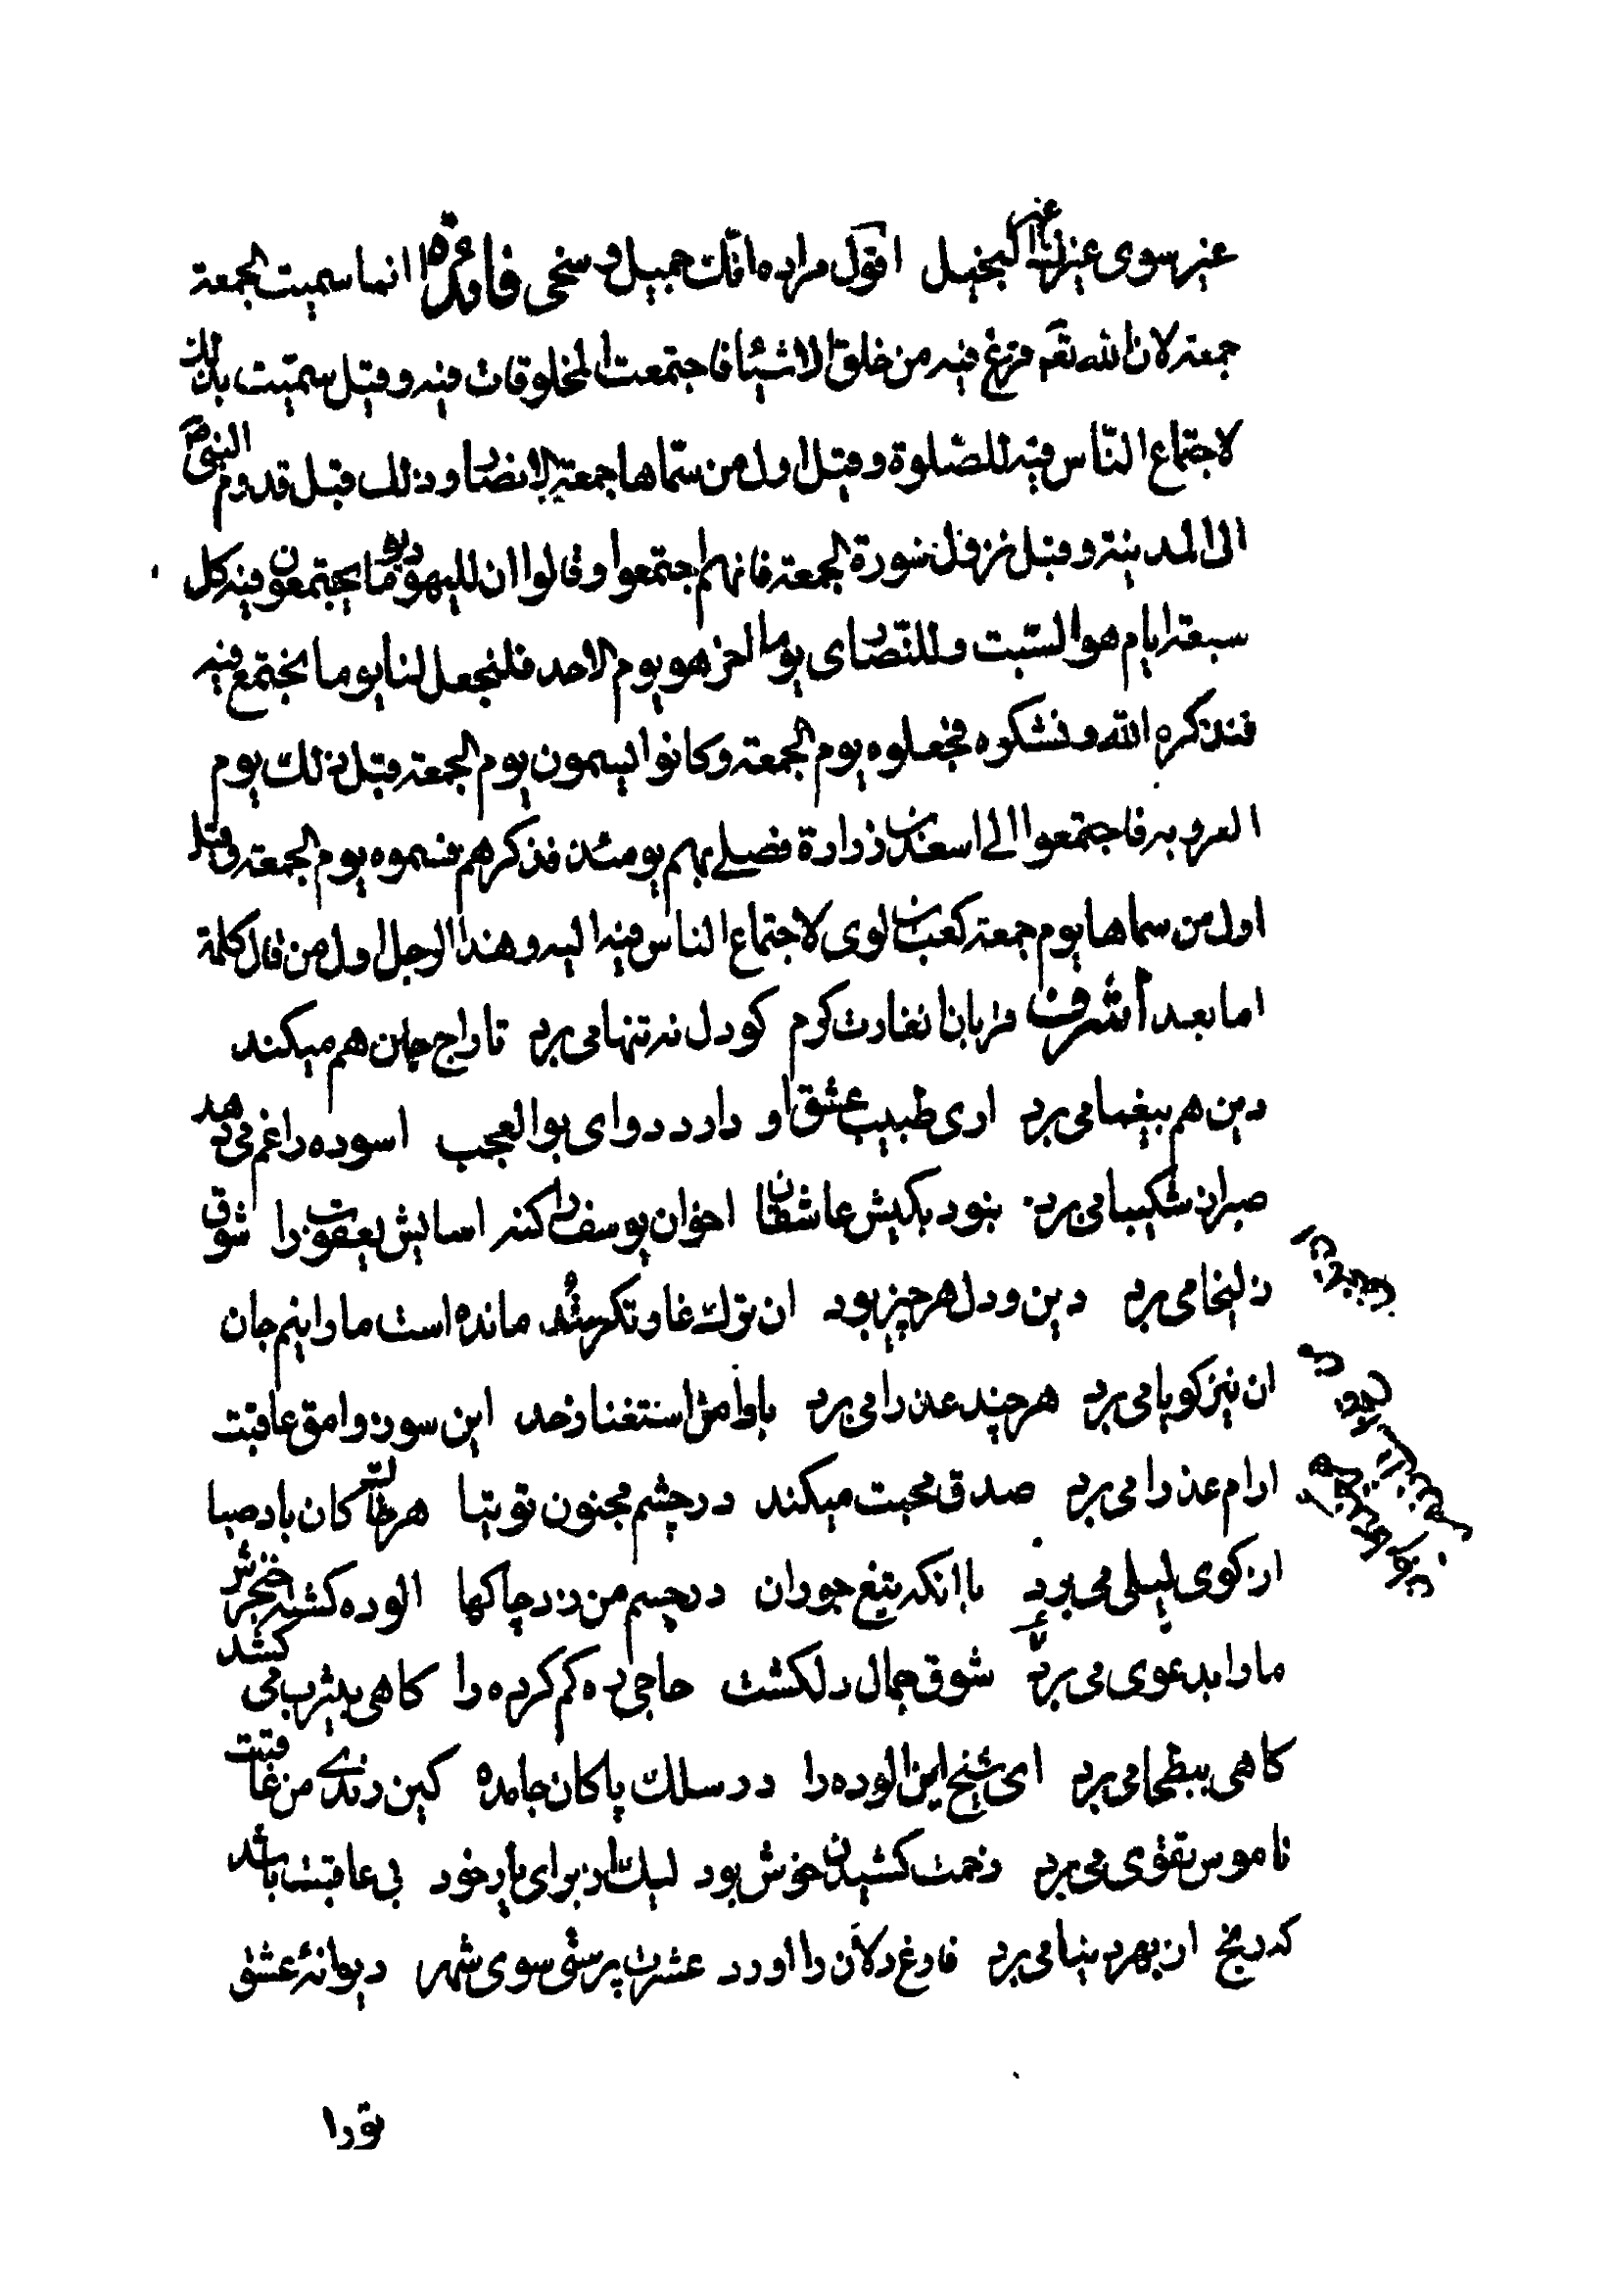 غير سوى غير أنك البخيل اقول مراده انّك جميل و سخى فائدة انما سميت الجمعة
جمعة لان الله تعـ فرغ فيه من خلق الاشيئا فاجتمعت المخلوقات فيه و قيل سمّيت بذلك
لاجتماع النّاس فيه للصّلوة و قيل اول من سمّاها جمعة الانصار و ذلك قبل قدوم النبىّ ص
الى المدينة و قبل نزول سورة الجمعة فانهم اجتمعوا و قالوا ان لليهود يوما يجتمعون فيه كل
سبعة ايام هو السّبت و للنّصارى يوما اخر هو يوم الاحد فلنجعل لنا يوما نجتمع فيه
فنذكره الله و نشكره فجعلوه يوم الجمعة و كانوا يسمون يوم الجمعة قبل ذلك يوم
العروبه فاجتمعوا الى اسعد بن زرارة فصلے بهم يومئذ فذكرهم فسموه يوم الجمعة و قيل
اول من سماها يوم جمعة كعب بن لوى لاجتماع الناس فيه اليه و هذا الرجل اول من قال كلمة
اما بعد اشرف قربان غارت كرم كو دل نه تنها مى برد تاراج جان هم ميكند
دين هم بيغما مى برد ارى طبيب عشق او دارد دواى بو العجب اسوده را غم مى دهد
صبر از شكيبا مى برد بنود بكيش عاشقان اخوان يوسف را كنه اسايش يعقوب را شوق
زليخا مى برد دين و دل هر چيز بود ان ترك غارتكر ستد مانده است ما را نيم جان
ان نيز كويا مى برد هر چند عذرا مى برد با وامق استغنا ز حد اين سوز وامق عاقبت
ارام عذرا مى برد صدق محبت ميكند در چشم مجنون توتيا هر خا كان باد صبا
از كوى ليلى مى برد با انكه تيغ جور ان در جسم من زد چاكها الوده كشته خنجرش
ما را بدعوى مى برد شوق جمال دلكشت حاجى ره كم كرده را كاهى بيثرب مى كشد
كاهى ببطحا مى برد اى شيخ اين الوده را در سلك پاكان جا مده كين رندے من عاقبت
ناموس تقوى مى برد زحمت كشيدن خوش بود ليك از براى يار خود بى عاقبت باشد
كه رنج از بهر دنيا مى برد فارغ دلان را اورد عشرت پرستى سوى شهر ديوانهٔ عشق
تو را